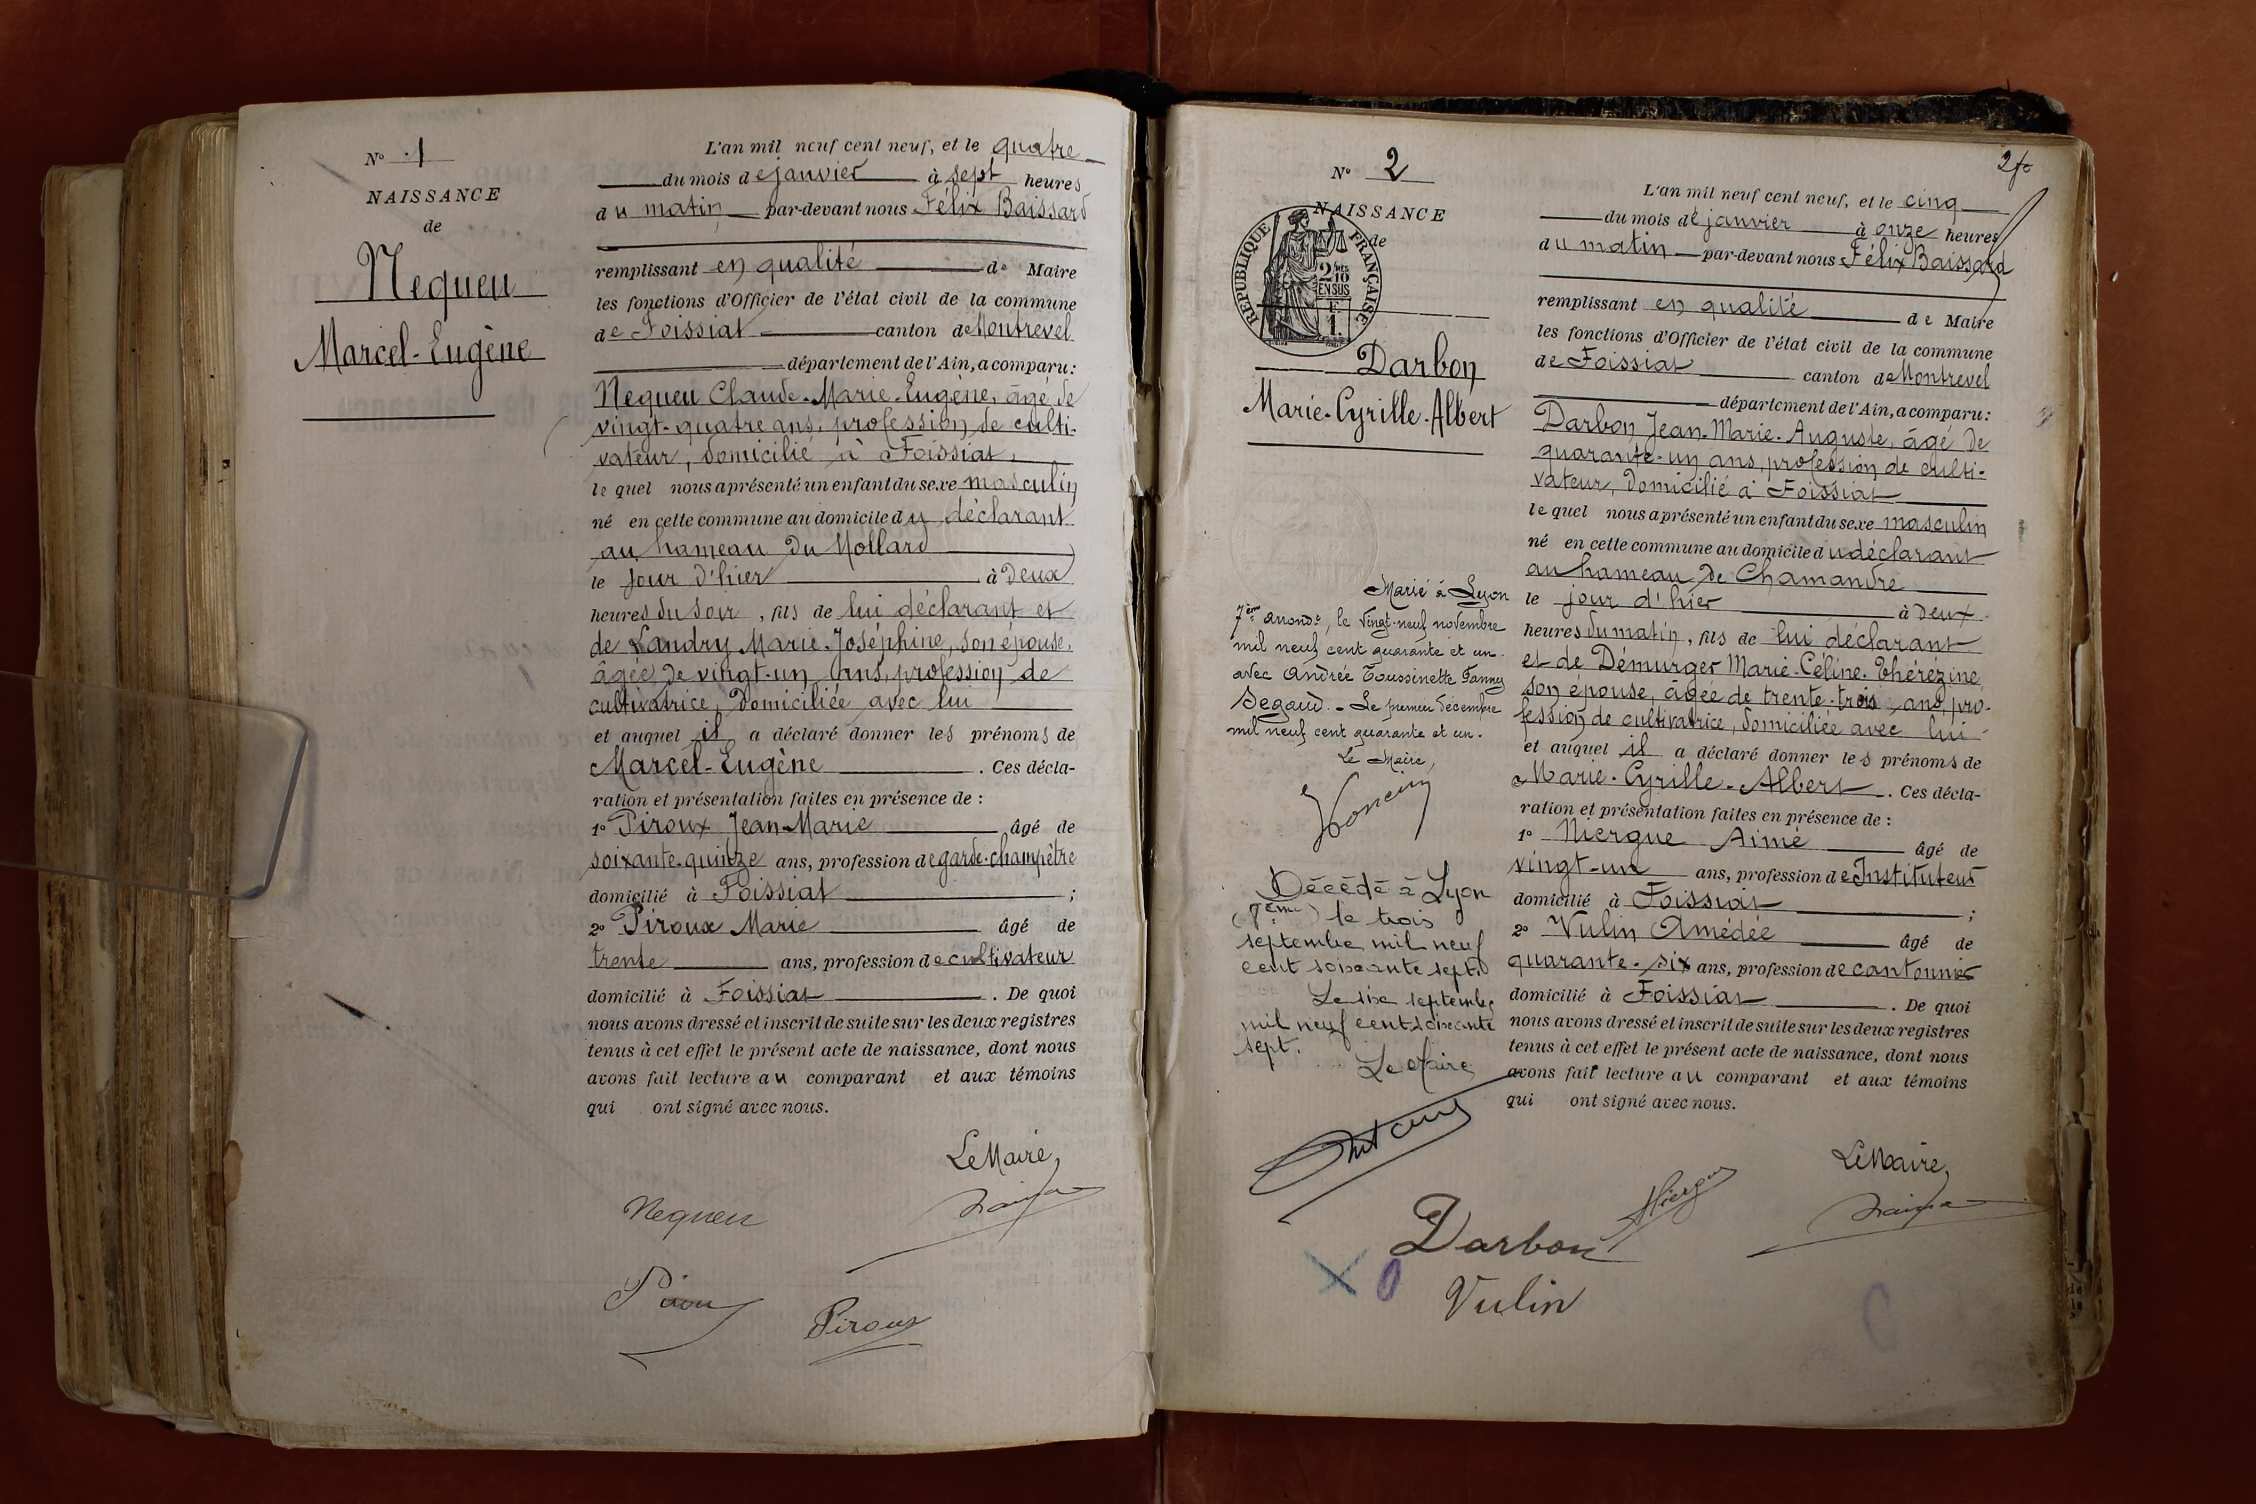 N° 1
NAISSANCE
de
Nequeu
Marcel-Eugène
L'an mil neuf cent neuf, et le quatre
du mois de janvier à sept heures
du matin par-devant nous Félix Baissard
remplissant en qualité de Maire
les fonctions d'Officier de l'état civil de la commune
de Foissiat canton de Montrevel
département de l'Ain, a comparu:
Nequeu Claude-Marie-Eugène, âgé de
vingt-quatre ans, profession de culti-
vateur, domicilié à Foissiat,
lequel nous a présenté un enfant du sexe masculin
né en cette commune au domicile du déclarant
au hameau du Mollard
le jour d'hier à deux
heures du soir, fils de lui déclarant et
de Landry Marie-Joséphine, son épouse,
âgée de vingt-un ans, profession de
cultivatrice, domiciliée avec lui
et auquel il a déclaré donner les prénoms de
Marcel-Eugène . Ces décla-
ration et présentation faites en présence de :
1° Piroux Jean-Marie âgé de
soixante-quinze ans, profession de garde-champêtre
domicilié à Foissiat ;
2° Piroux Marie âgé de
trente ans, profession de cultivateur
domicilié à Foissiat . De quoi
nous avons dressé et inscrit de suite sur les deux registres
tenus à cet effet le présent acte de naissance, dont nous
avons fait lecture au comparant et aux témoins
qui ont signé avec nous.
Le Maire,
Nequeu
Piroux
2
N° 2
NAISSANCE
de
RÉPUBLIQUE FRANÇAISE
2/10
EN SUS
F
1.
Darbon
Marie-Cyrille-Albert
Marié à Lyon
7ème arrond.t, le vingt-neuf novembre
mil neuf cent quarante et un
avec Andrée Toussinette Fanny
Segaud. - Le premier décembre
mil neuf cent quarante et un.
Le Maire,
Décédé à Lyon
(7ème) le trois
septembre mil neuf
cent soixante sept.
Le six septembre
mil neuf cent soixante
sept.
Le Maire
L'an mil neuf cent neuf, et le cinq
du mois de janvier à onze heures
du matin par-devant nous Félix Baissard
remplissant en qualité de Maire
les fonctions d'Officier de l'état civil de la commune
de Foissiat canton de Montrevel
département de l'Ain, a comparu:
Darbon Jean-Marie-Auguste, âgé de
quarante-un ans, profession de culti-
vateur, domicilié à Foissiat
lequel nous a présenté un enfant du sexe masculin
né en cette commune au domicile du déclarant
au hameau de Chamandre
le jour d'hier à deux
heures du matin, fils de lui déclarant
et de Démurger Marie-Céline-Thérézine
son épouse, âgée de trente-trois ans, pro-
fession de cultivatrice, domiciliée avec lui
et auquel il a déclaré donner les prénoms de
Marie-Cyrille-Albert . Ces décla-
ration et présentation faites en présence de :
1° Miergue Aimé âgé de
vingt-un ans, profession de Instituteur
domicilié à Foissiat ;
2° Vulin Amédée âgé de
quarante-six ans, profession de cantonnier
domicilié à Foissiat . De quoi
nous avons dressé et inscrit de suite sur les deux registres
tenus à cet effet le présent acte de naissance, dont nous
avons fait lecture au comparant et aux témoins
qui ont signé avec nous.
Le Maire,
Darbon
Vulin